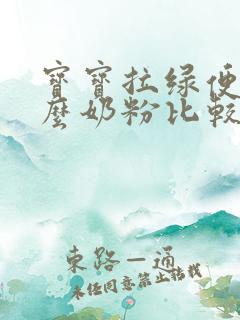 寶寶拉綠便
麼奶粉比較
東路一通
未經同意禁止轉載